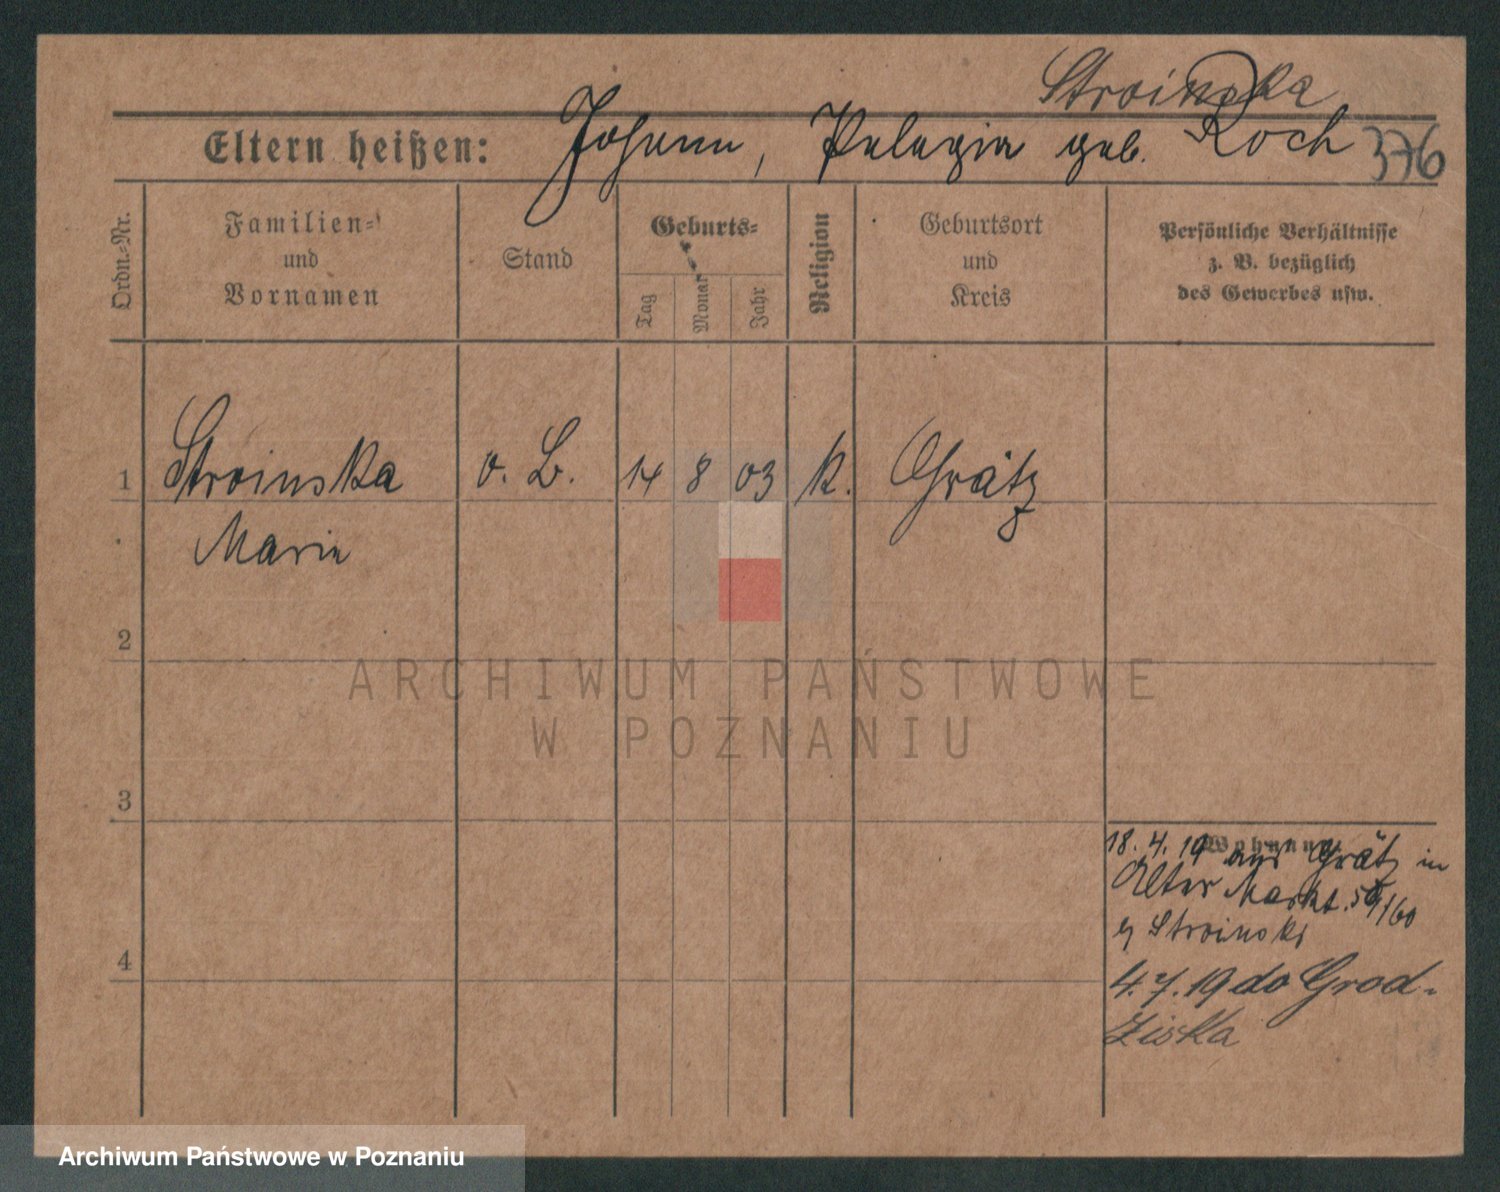 Stroinska
Eltern heißen: Johann, Pelagia geb. Roch 376
Ordn.-Nr.
Familien-
und
Vornamen
Stand
Geburts-
Tag
Monat
Jahr
Religion
Geburtsort
und
Kreis
Persönliche Verhältnisse
z. B. bezüglich
des Gewerbes usw.
1 Stroinska o. B. 14 8 03 k. Grätz
Marie
2
3
4
Wohnung
18. 4. 19 aus Grätz in
Alter Markt. 59/60
Stroinski
4. 7. 19 do Grod-
ziska
ARCHIWUM PAŃSTWOWE
W POZNANIU
Archiwum Państwowe w Poznaniu